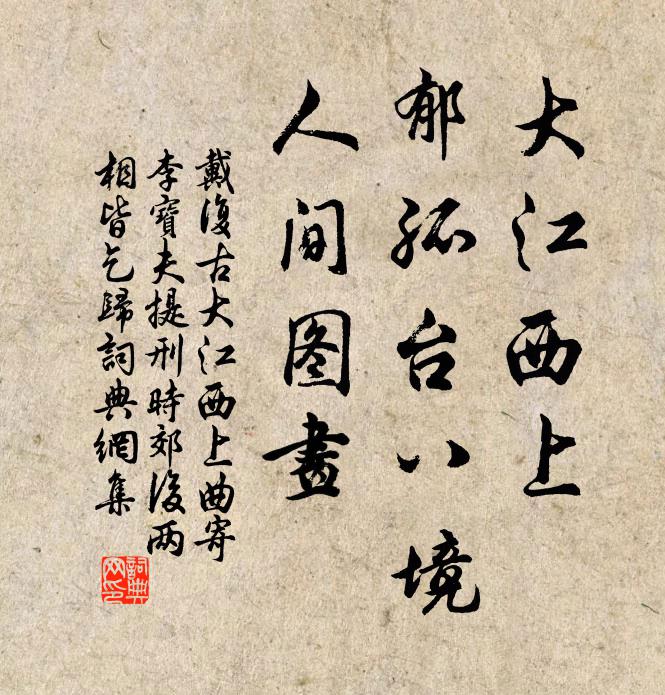 大江西上
郁孤台八境
人间图畫
戴復古大江西上曲寄
李寶夫提刑時郊後两
相皆乞歸詞典網集
詞典网印